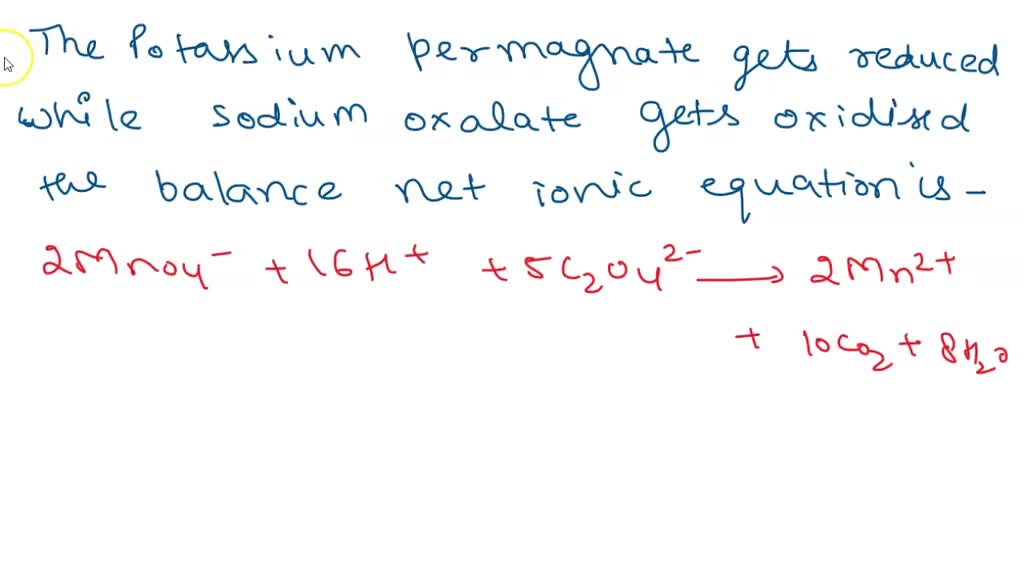 The Potassium permagnate gets reduced
while sodium oxalate gets oxidised
the balance net ionic equation is -
2MnO4⁻ + 16H⁺ + 5C₂O₄²⁻ ⟶ 2Mn²⁺
+ 10CO₂ + 8H₂O